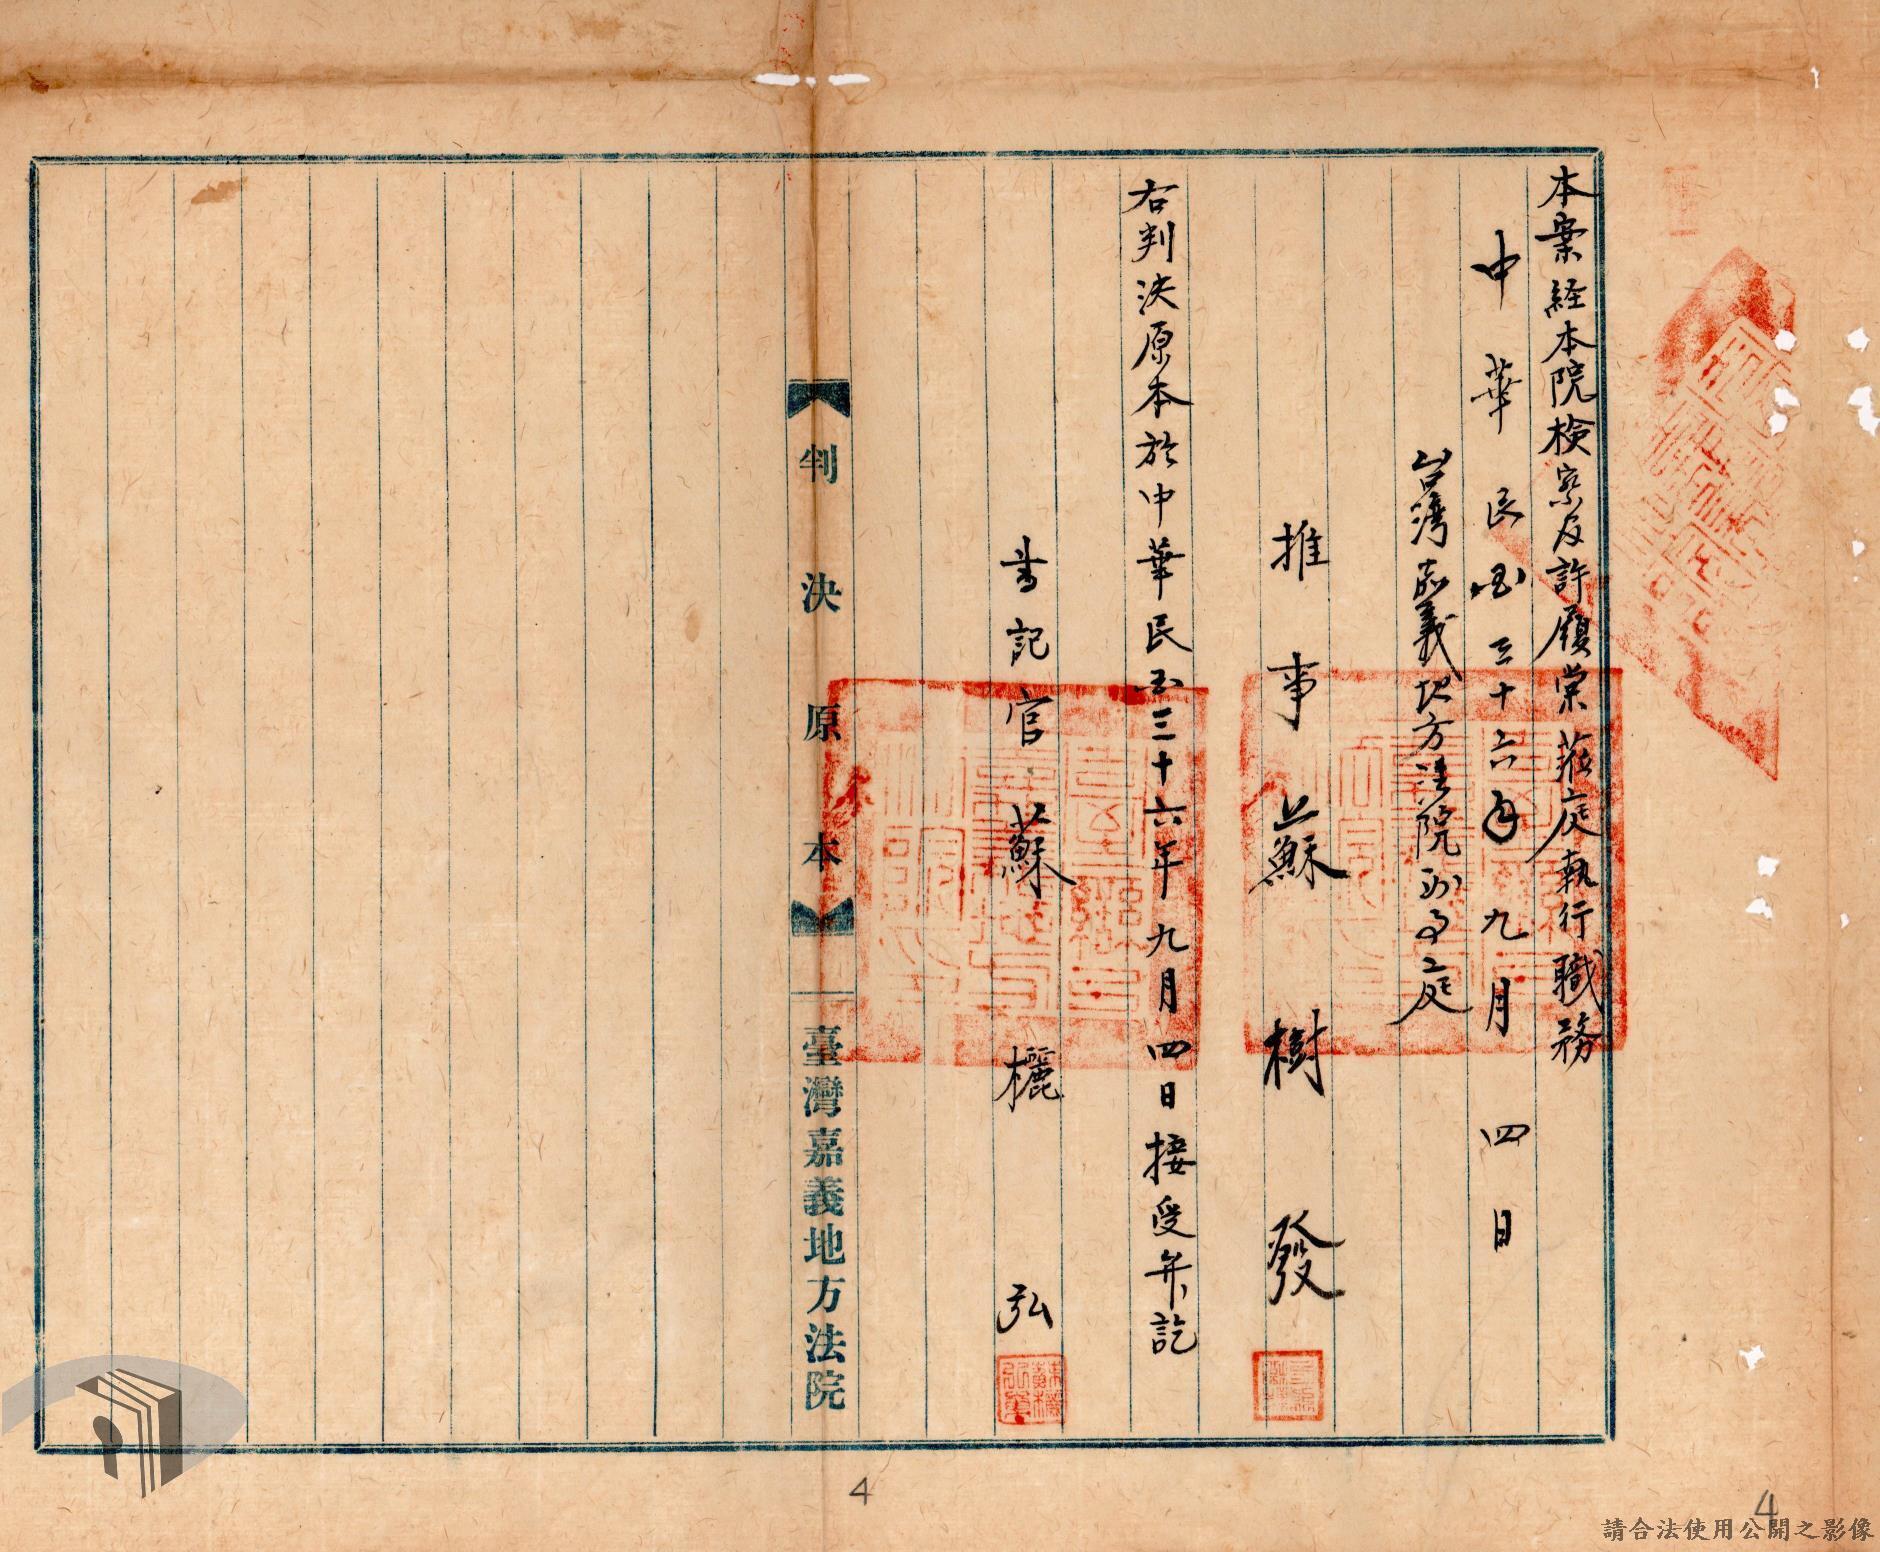 本案経本院検察官許履棠蒞庭執行職務
中華民国三十六年九月四日
台湾嘉義地方法院刑事庭
推事蘇樹發
右判決原本於中華民国三十六年九月四日接受弁訖
書記官蘇欐弘
判決原本
臺灣嘉義地方法院
4
4
請合法使用公開之影像